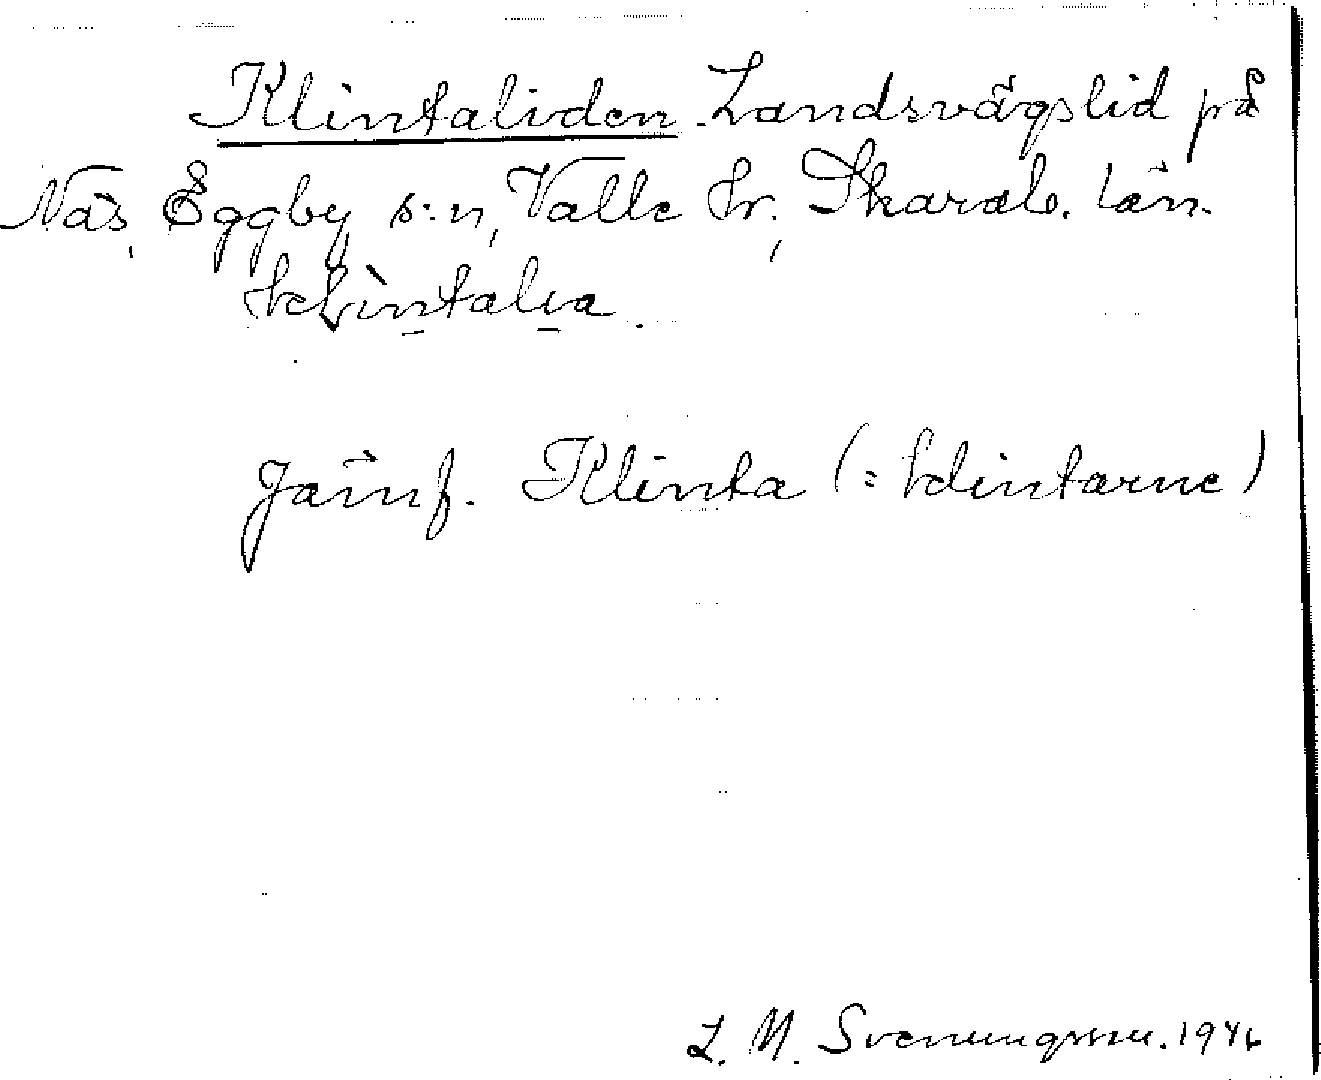 Klintaliden. Landsvägslid på
Näs, Eggby s:n, Valle hr, Skarab. län.
klintalia.
Jämf. Klinta (= klintarne)
L. M. Svenungsson. 1946